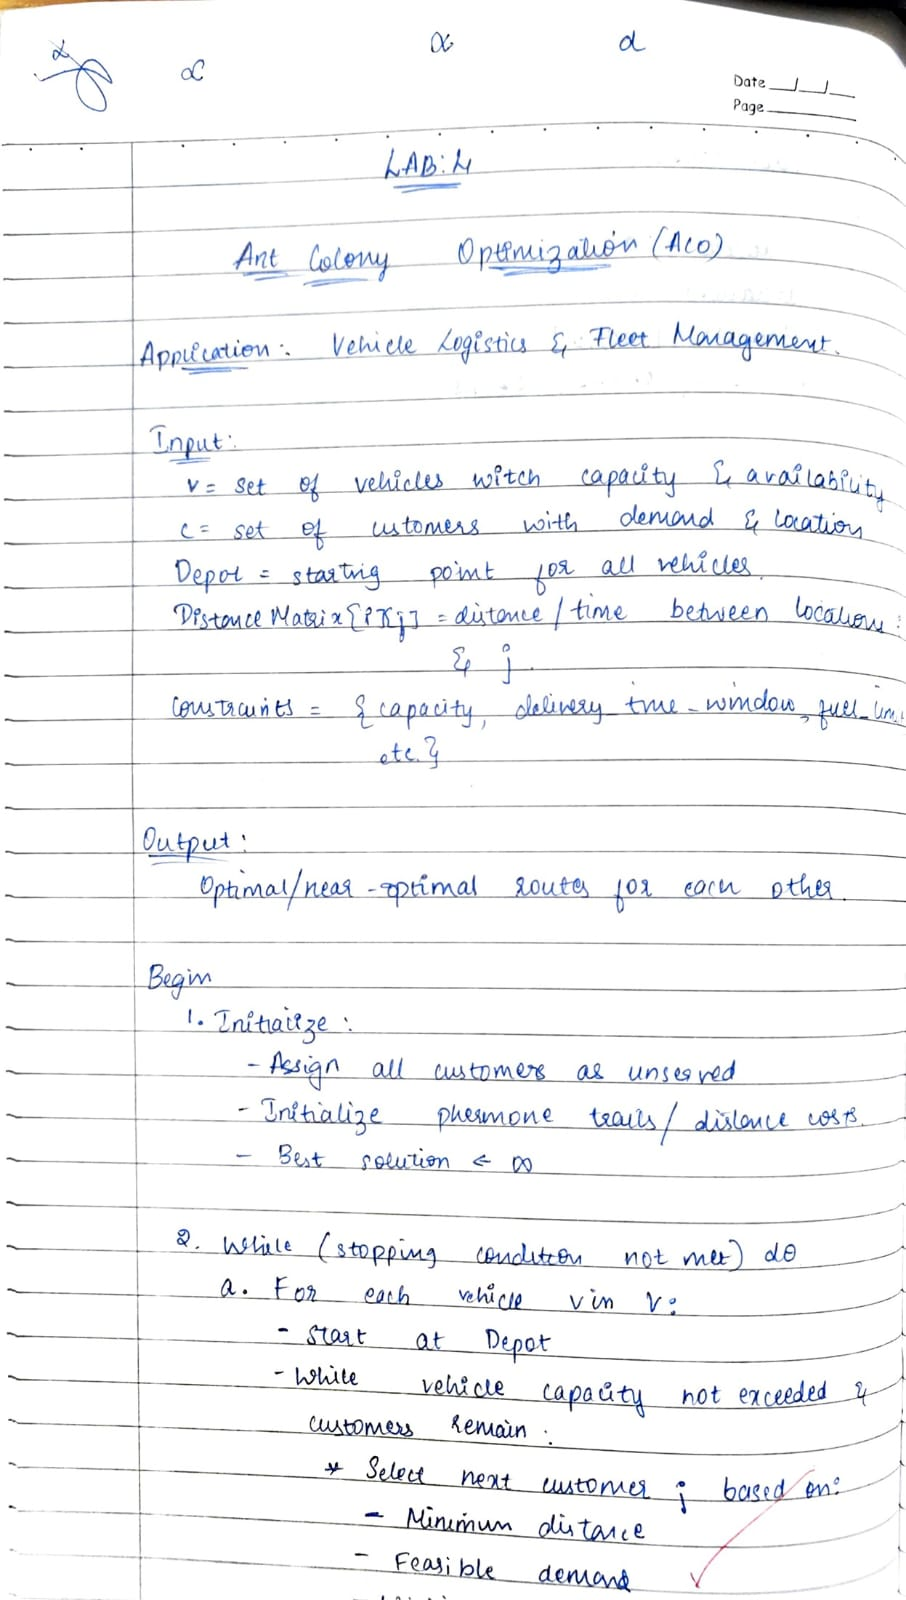 α α α d
Date __/__/__
Page
LAB: 4
Ant Colony Optimization (ACO)
Application: Vehicle Logistics & Fleet Management.
Input:
V = set of vehicles witch capacity & availability
C = set of customers with demand & location
Depot = starting point for all vehicles.
Distance Matrix[i][j] = distance / time between locations i
& j.
Constraints = {capacity, delivery time-window, fuel_lim
etc.}
Output:
Optimal/near-optimal routes for each other.
Begin
1. Initialize:
- Assign all customers as unserved
- Initialize phermone trails / distance costs.
- Best solution ← ∞
2. While (stopping condition not met) do
a. For each vehicle v in V:
- Start at Depot
- While vehicle capacity not exceeded &
customers remain:
* Select next customer j based on:
- Minimum distance
- Feasible demand